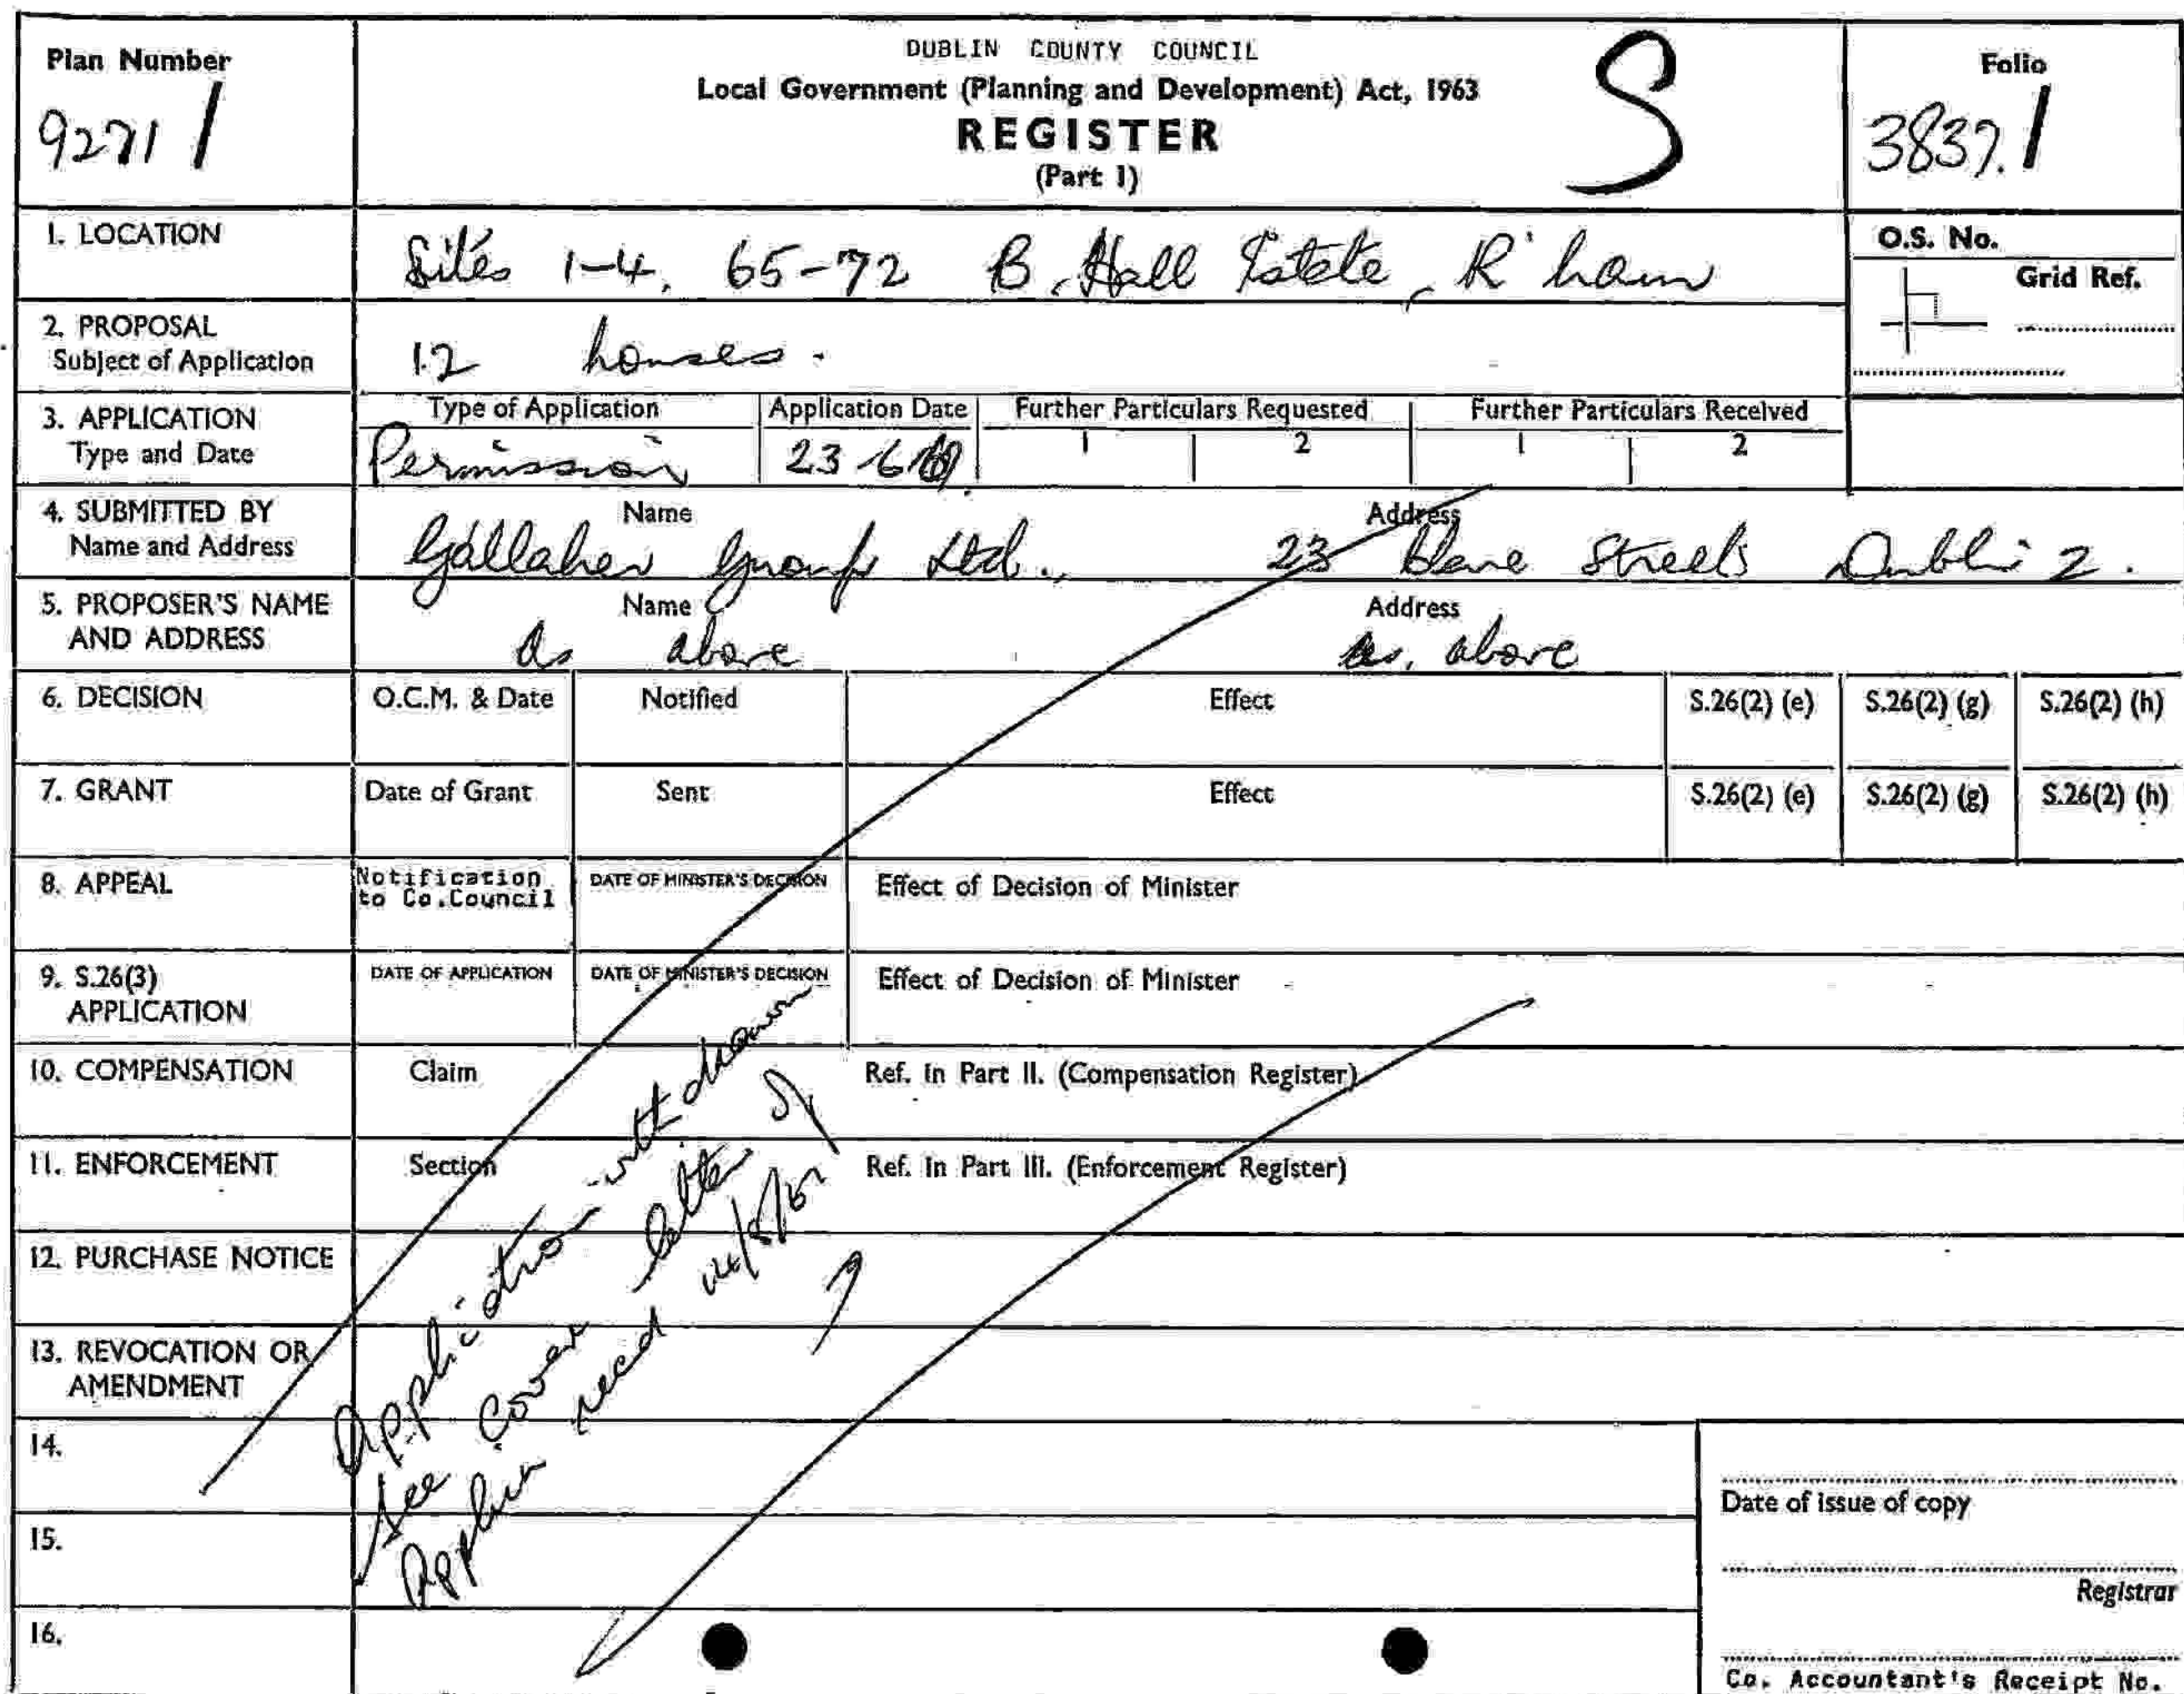 DUBLIN COUNTY COUNCIL
Local Government (Planning and Development) Act, 1963
REGISTER
(Part I)
S
Plan Number
9271 /
Folio
3837. /
1. LOCATION
Sites 1-4, 65-72 B. Hall Estate, R'ham
O.S. No.
Grid Ref.
2. PROPOSAL
Subject of Application
12 houses.
3. APPLICATION
Type and Date
Type of Application
Permission
Application Date
23 6
Further Particulars Requested
1 2
Further Particulars Received
1 2
4. SUBMITTED BY
Name and Address
Name
Gallaher Group Ltd.,
Address
23 Streets Dublin 2.
5. PROPOSER'S NAME
AND ADDRESS
Name
As above
Address
as. above
6. DECISION
O.C.M. & Date Notified Effect S.26(2) (e) S.26(2) (g) S.26(2) (h)
7. GRANT
Date of Grant Sent Effect S.26(2) (e) S.26(2) (g) S.26(2) (h)
8. APPEAL
Notification
to Co.Council
DATE OF MINISTER'S DECISION
Effect of Decision of Minister
9. S.26(3)
APPLICATION
DATE OF APPLICATION DATE OF MINISTER'S DECISION Effect of Decision of Minister
10. COMPENSATION
Claim
Ref. in Part II. (Compensation Register)
11. ENFORCEMENT
Section
Ref. in Part III. (Enforcement Register)
12. PURCHASE NOTICE
13. REVOCATION OR
AMENDMENT
Application withdrawn
See Cover letter of
recd
14.
15.
16.
Date of issue of copy
Registrar
Co. Accountant's Receipt No.